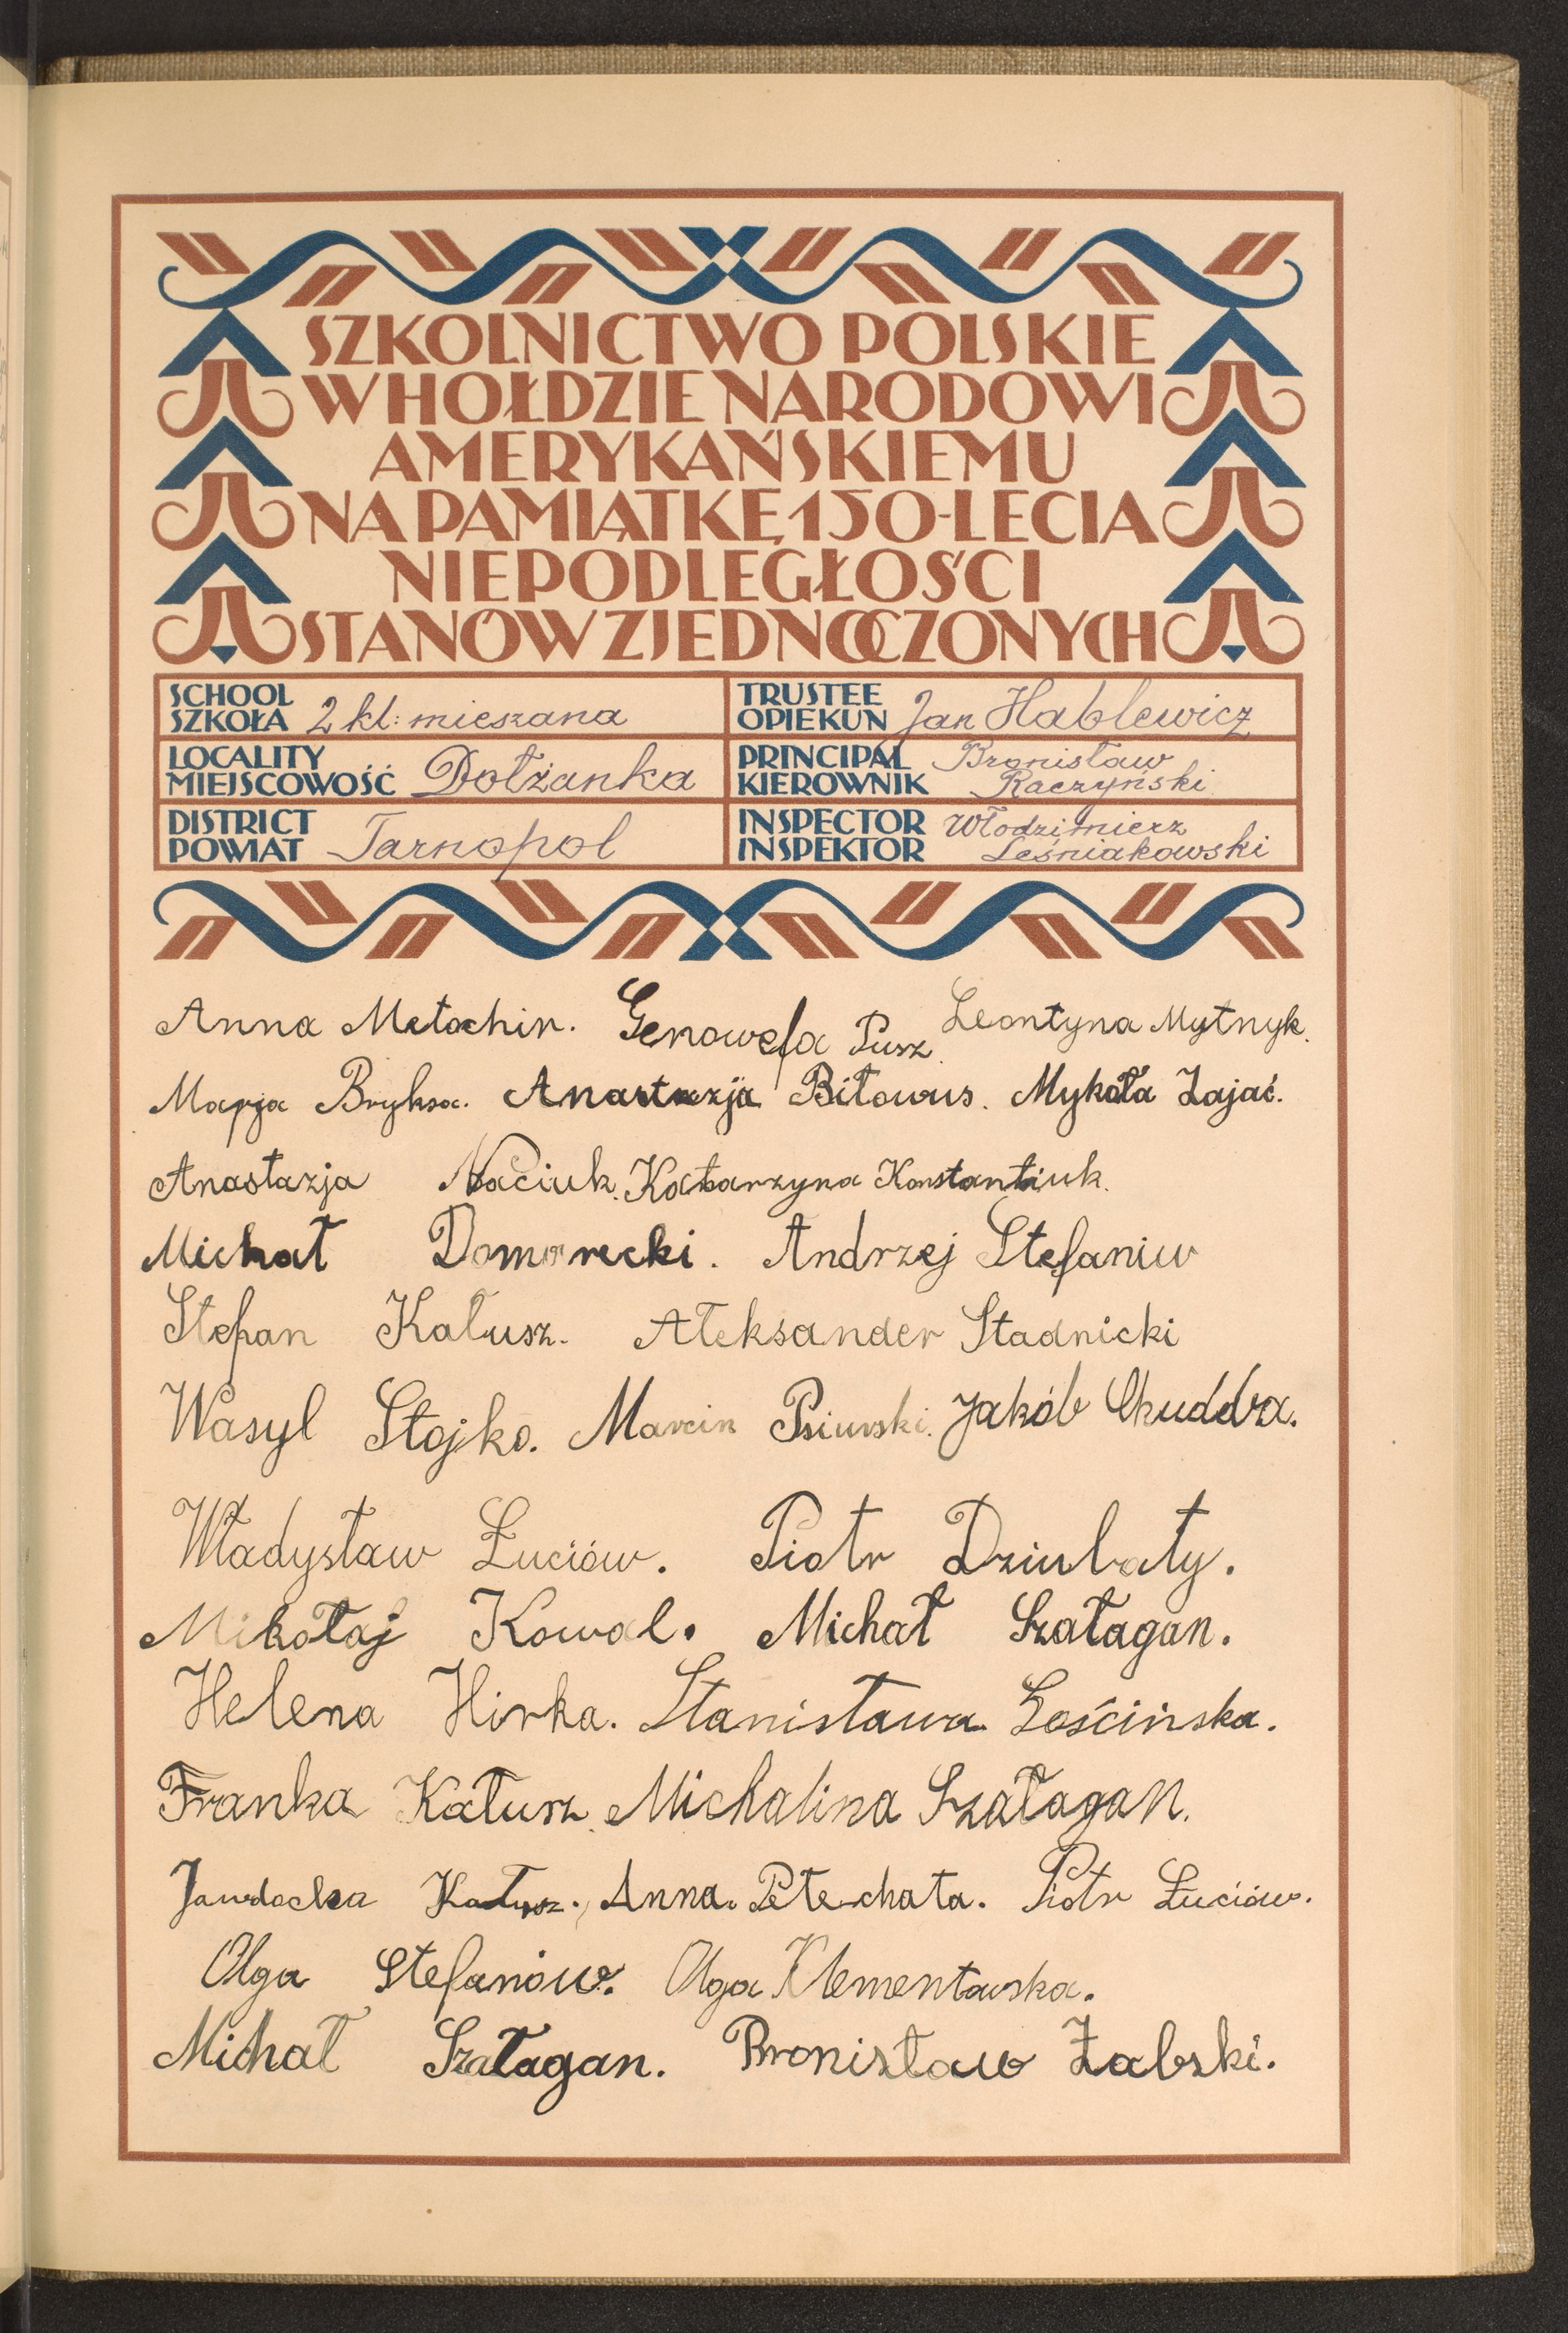 SZKOLNICTWO POLSKIE
W HOŁDZIE NARODOWI
AMERYKAŃSKIEMU
NA PAMIĄTKĘ 150-LECIA
NIEPODLEGŁOŚCI
STANÓW ZJEDNOCZONYCH
SCHOOL
SZKOŁA 2 kl: mieszana
TRUSTEE
OPIEKUN Jan Hablewicz
LOCALITY
MIEJSCOWOŚĆ Dołżanka
PRINCIPAL Bronisław
KIEROWNIK Raczyński
DISTRICT
POWIAT Tarnopol
INSPECTOR Włodzimierz
INSPEKTOR Leśniakowski
Anna Metochir. Genowefa Pusz. Leontyna Mytnyk.
Marja Bryksa. Anastazja Biłowus. Mykoła Zajać.
Anastazja Naciuk. Katarzyna Konstantiuk.
Michał Domorecki. Andrzej Stefaniw
Stefan Kałusz. Ałeksander Stadnicki
Wasyl Stojko. Marcin Psiurski. Jakób
Władysław Łuciów. Piotr Dziubaty.
Mikołaj Kowal. Michał Szałagan.
Helena Hirka. Stanisława Łościńska.
Franka Kałusz. Michalina Szałagan.
Jawdocha Kałusz. Anna Petechata. Piotr Łuciów.
Olga Stefanów. Olga Klementowska.
Michał Szałagan. Bronisław Żabski.